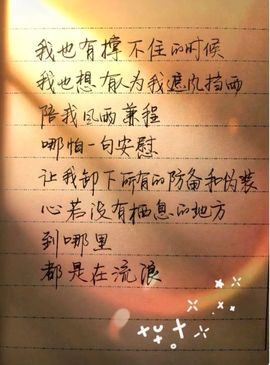 我也有撑不住的时候
我也想有人为我遮风挡雨
陪我风雨兼程
哪怕一句安慰
让我卸下所有的防备和伪装
心若没有栖息的地方
到哪里
都是在流浪